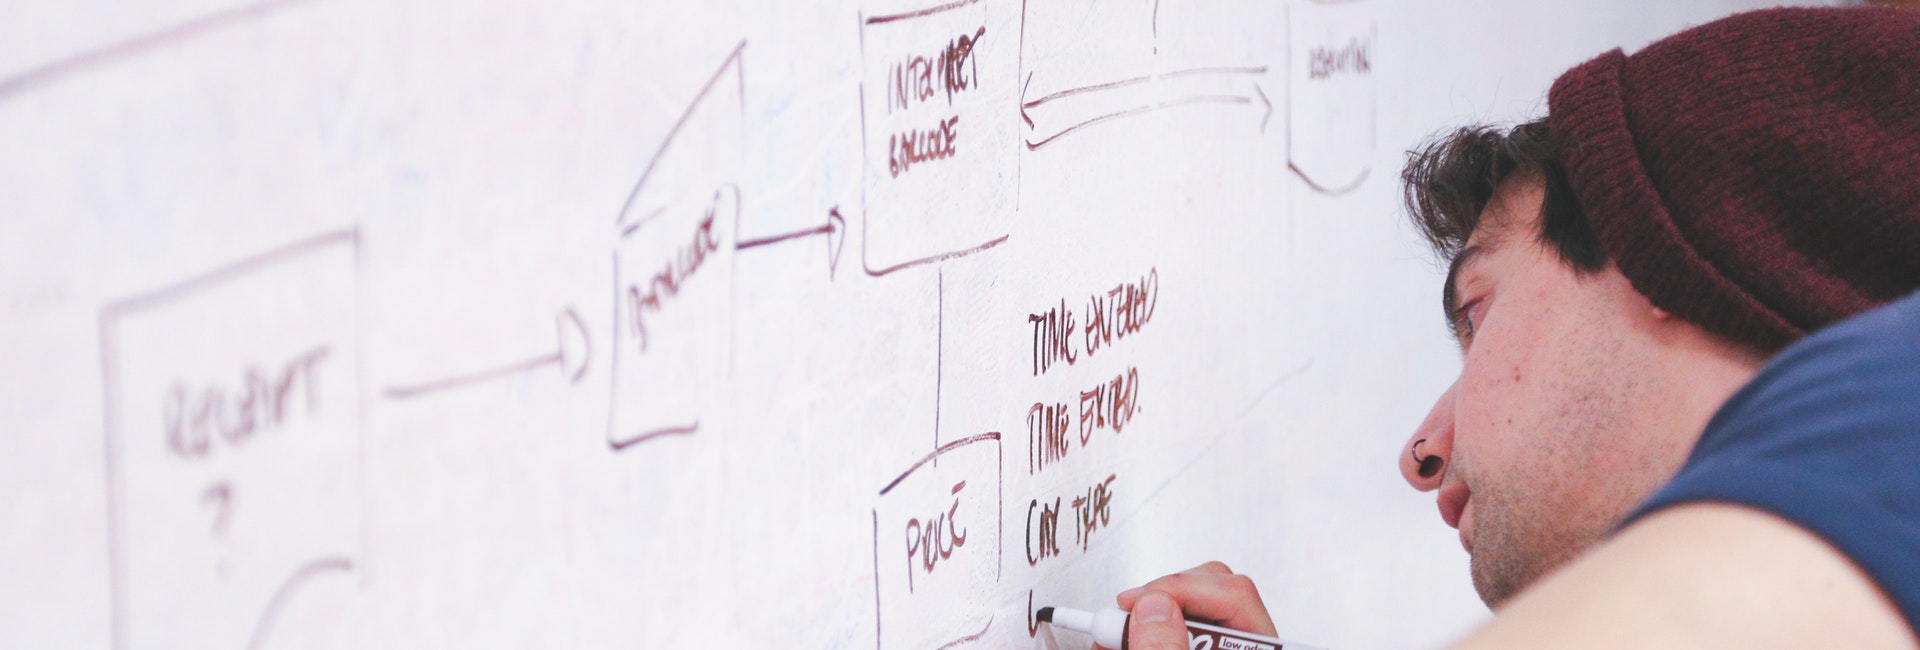 RECEIPT
?
BARCODE
INTERPRET
BARCODE
?
TIME ENTERED
TIME EXITED.
CAR TYPE
PRICE
low odor